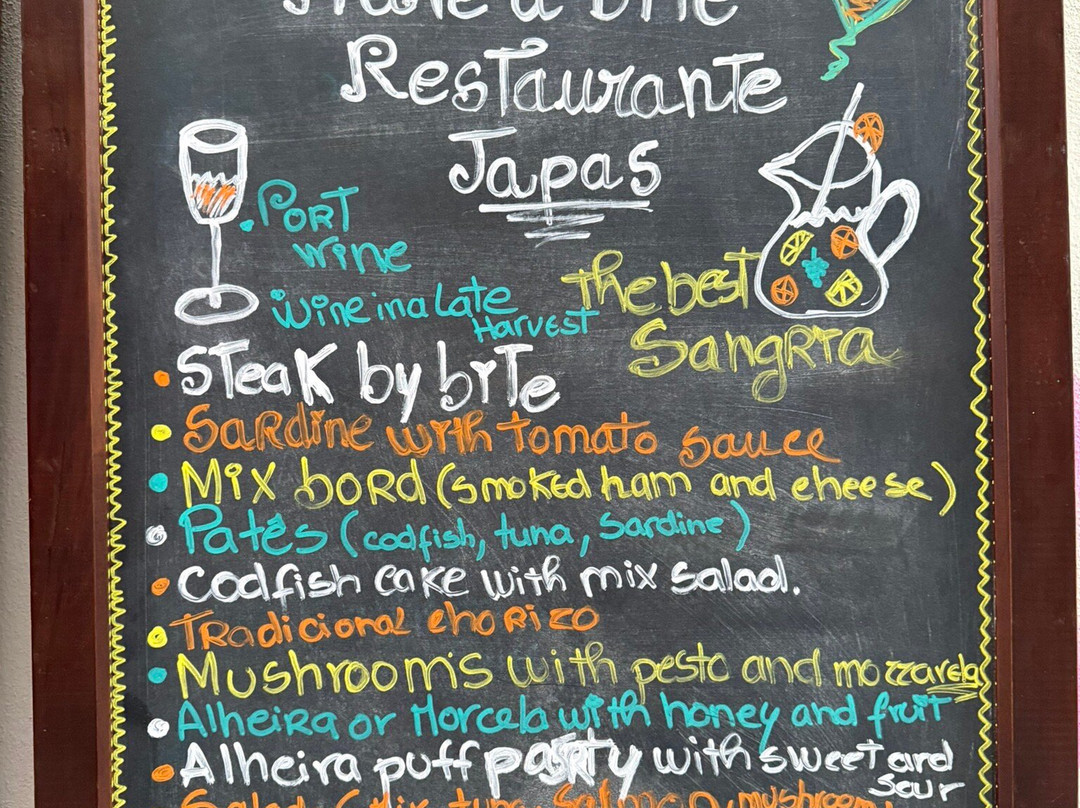 a Bite
Restaurante
Tapas
Port
wine
wine in a late
Harvest
the best
Sangria
Steak by bite
Sardine with tomato sauce
Mix bord (smoked ham and cheese)
Patês (codfish, tuna, Sardine)
Codfish cake with mix salad.
Tradicional chorizo
Mushroom's with pesto and mozzarela
Alheira or Morcela with honey and fruit
Alheira puff pasty with sweet and
sour
Salad tuna, Salmon, mushroom